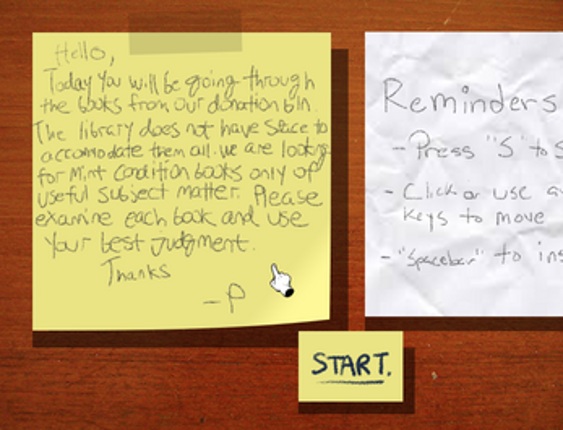 Hello,
Today you will be going through
the books from our donation bin.
The library does not have space to
accomodate them all. we are looking
for mint condition books only of
useful subject matter. Please
examine each book and use
your best judgment.
Thanks
-P
Reminders
- Press "S" to S
- Click or use a
keys to move
- "Spacebar" to ins
START.